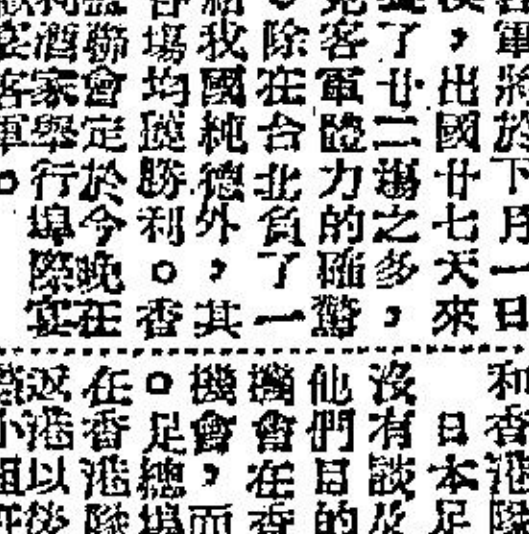 軍將於下月一日
,出國廿七天來
了廿二場之多,
客軍體力的確驚
。除在台北負了一
給我國純德外,其
各場均獲勝利。香
聯會定於今晚在
酒家舉行埠際宴
宴客軍。
和香港隊
日本足
沒有談及
他們目的
機會在香
機會,而
。足總場
在香港隊
返港以後
小組